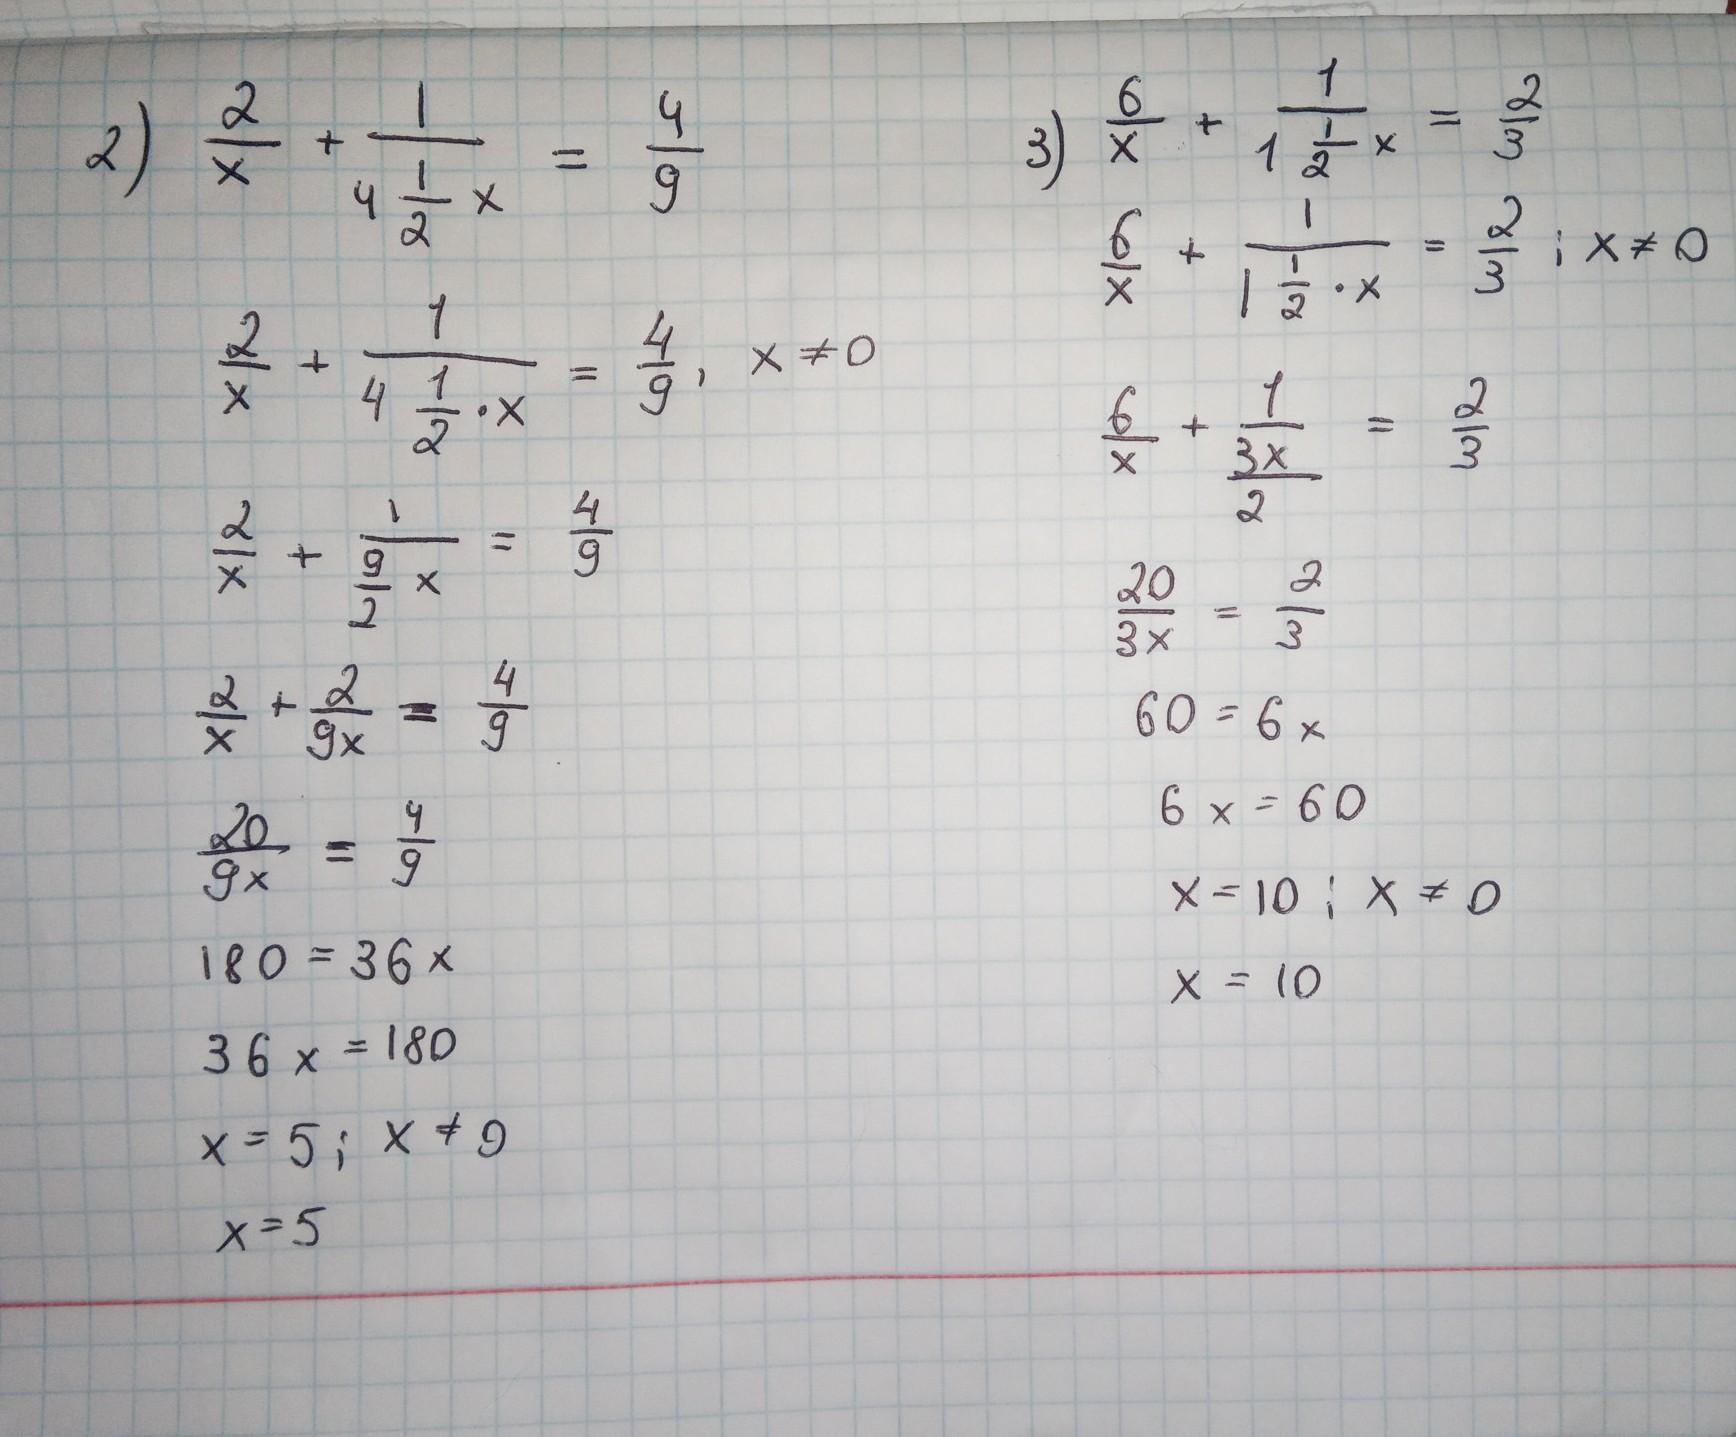 2) 2/x + 1/(4 1/2 x) = 4/9
2/x + 1/(4 1/2 · x) = 4/9, x ≠ 0
2/x + 1/(9/2 x) = 4/9
2/x + 2/9x = 4/9
20/9x = 4/9
180 = 36x
36x = 180
x = 5; x ≠ 0
x = 5
3) 6/x + 1/(1 1/2 x) = 2/3
6/x + 1/(1 1/2 · x) = 2/3 ; x ≠ 0
6/x + 1/(3x/2) = 2/3
20/3x = 2/3
60 = 6x
6x = 60
x = 10; x ≠ 0
x = 10